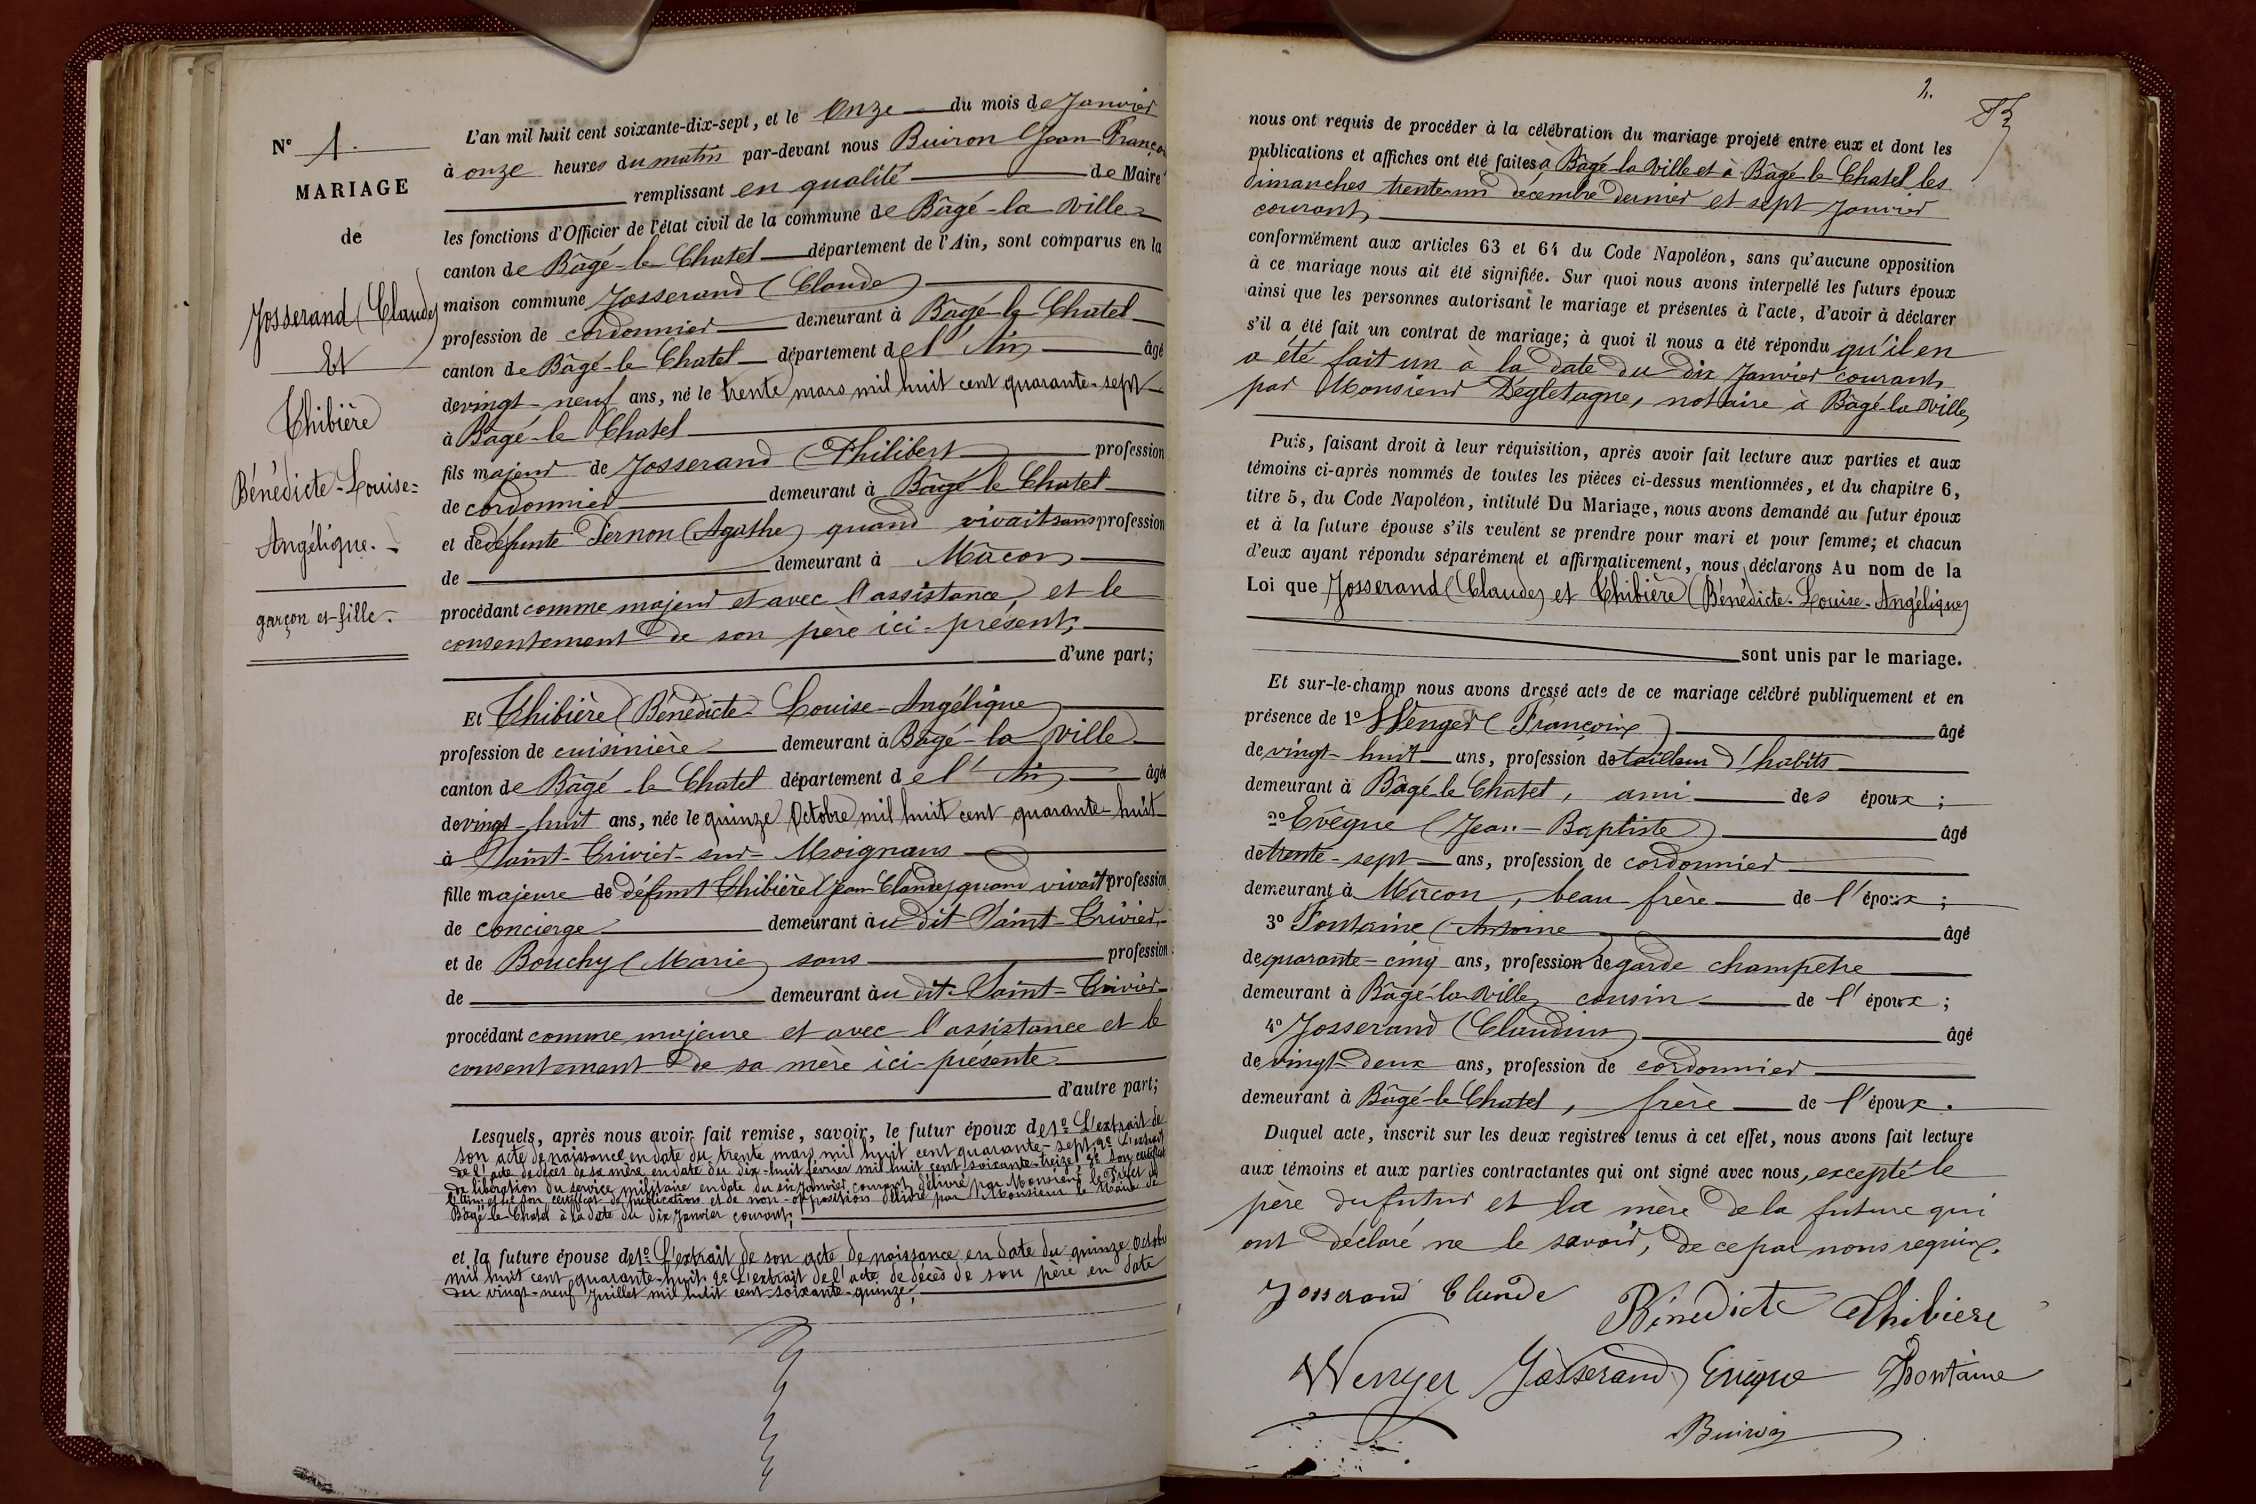 N° 1.
MARIAGE
de
Josserand (Claude)
Et
Thibière
Bénédicte-Louise-
Angélique.
garçon et fille.
L'an mil huit cent soixante-dix-sept, et le onze du mois de Janvier
à onze heures du matin par-devant nous Buiron (Jean François
remplissant en qualité de Maire
les fonctions d'Officier de l'état civil de la commune de Bâgé-la-Ville
canton de Bâgé-le-Chatel département de l'Ain, sont comparus en la
maison commune Josserand (Claude)
profession de cordonnier demeurant à Bâgé-le-Chatel
canton de Bâgé-le-Chatel département de l'Ain âgé
de vingt-neuf ans, né le trente mars mil huit cent quarante-sept
à Bâgé-le-Chatel
fils majeur de Josserand (Philibert profession
de cordonnier demeurant à Bâgé-le-Chatel
et de défunte Pernon (Agathe) quand vivait sans profession
de demeurant à Mâcon
procédant comme majeur et avec l'assistance, et le
consentement de son père ici-présent,
d'une part;
Et Thibière (Bénédicte-Louise-Angélique
profession de cuisinière demeurant à Bâgé-la Ville
canton de Bâgé-le-Chatel département de l'Ain âgée
de vingt-huit ans, née le quinze Octobre mil huit cent quarante-huit
à Saint-Trivier-sur-Moignans
fille majeure de défunt Thibière (Jean Claude) quand vivait profession
de concierge demeurant au dit Saint-Trivier,
et de Bouchy (Marie) sans profession
de demeurant au dit Saint-Trivier
procédant comme majeure et avec l'assistance et le
consentement de sa mère ici-présente
d'autre part;
Lesquels, après nous avoir fait remise, savoir, le futur époux de 1° L'extrait de
son acte de naissance en date du trente mars mil huit cent quarante-sept, 2° L'extrait
de l'acte de décès de sa mère, en date du dix-huit février mil huit cent soixante-treize, 3° son certificat
de libération du service militaire en date du six Janvier courant délivré par Monsieur le Préfet de
l'Ain et son certificat de publication et de non-opposition délivré par Monsieur le Maire de
Bâgé-le-Chatel à la date du dix Janvier courant;
et la future épouse de 1° L'extrait de son acte de naissance en date du quinze Octobre
mil huit cent quarante-huit 2° L'extrait de l'acte de décès de son père en date
du vingt-neuf Juillet mil huit cent soixante-quinze,
2.
nous ont requis de procéder à la célébration du mariage projeté entre eux et dont les
publications et affiches ont été faites à Bâgé-la Ville et à Bâgé-le Chatel les
dimanches trente-un décembre dernier et sept Janvier
courant,
conformément aux articles 63 et 64 du Code Napoléon, sans qu'aucune opposition
à ce mariage nous ait été signifiée. Sur quoi nous avons interpellé les futurs époux
ainsi que les personnes autorisant le mariage et présentes à l'acte, d'avoir à déclarer
s'il a été fait un contrat de mariage; à quoi il nous a été répondu qu'il en
a été fait un à la date du dix Janvier courant
par Monsieur Dégletagne, notaire à Bâgé-la Ville,
Puis, faisant droit à leur réquisition, après avoir fait lecture aux parties et aux
témoins ci-après nommés de toutes les pièces ci-dessus mentionnées, et du chapitre 6,
titre 5, du Code Napoléon, intitulé Du Mariage, nous avons demandé au futur époux
et à la future épouse s'ils veulent se prendre pour mari et pour femme; et chacun
d'eux ayant répondu séparément et affirmativement, nous déclarons Au nom de la
Loi que Josserand (Claude) et Thibière (Bénédicte-Louise-Angélique)
sont unis par le mariage.
Et sur-le-champ nous avons dressé acte de ce mariage célébré publiquement et en
présence de 1° Wenger (François) âgé
de vingt-huit ans, profession de tailleur d'habits
demeurant à Bâgé-le Chatel, ami des époux;
2° Evèque (Jean-Baptiste) âgé
de trente-sept ans, profession de cordonnier
demeurant à Mâcon, beau-frère de l'époux;
3° Fontaine (Antoine âgé
de quarante-cinq ans, profession de garde champetre
demeurant à Bâgé-la-Ville, cousin de l'époux;
4° Josserand (Claudius) âgé
de vingt-deux ans, profession de cordonnier
demeurant à Bâgé-le Chatel, frère de l'époux.
Duquel acte, inscrit sur les deux registres tenus à cet effet, nous avons fait lecture
aux témoins et aux parties contractantes qui ont signé avec nous, excepté le
père du futur et la mère de la future qui
ont déclaré ne le savoir, de ce par nous requis.
Josserand Claude Bénedicte Thibiere
Wenger Josserand Evèque Fontaine
Buiron